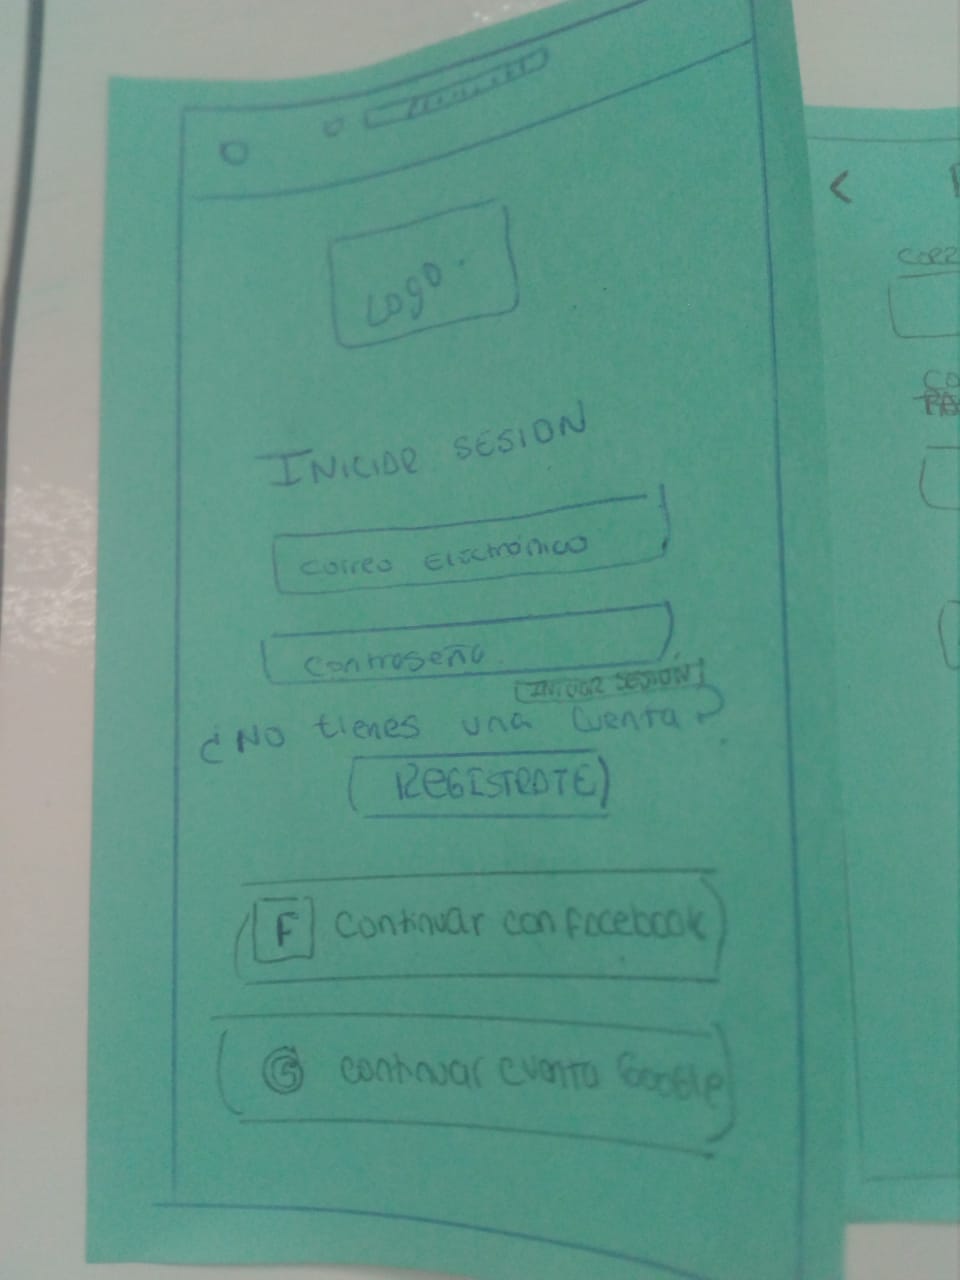 Logo.
INICIAR SESION
Correo Electrónico
Contraseña
INICIAR SESION
¿No tienes una Cuenta?
REGISTRATE
F Continuar con Facebook
G continuar cuenta Google
<
CORR
CO